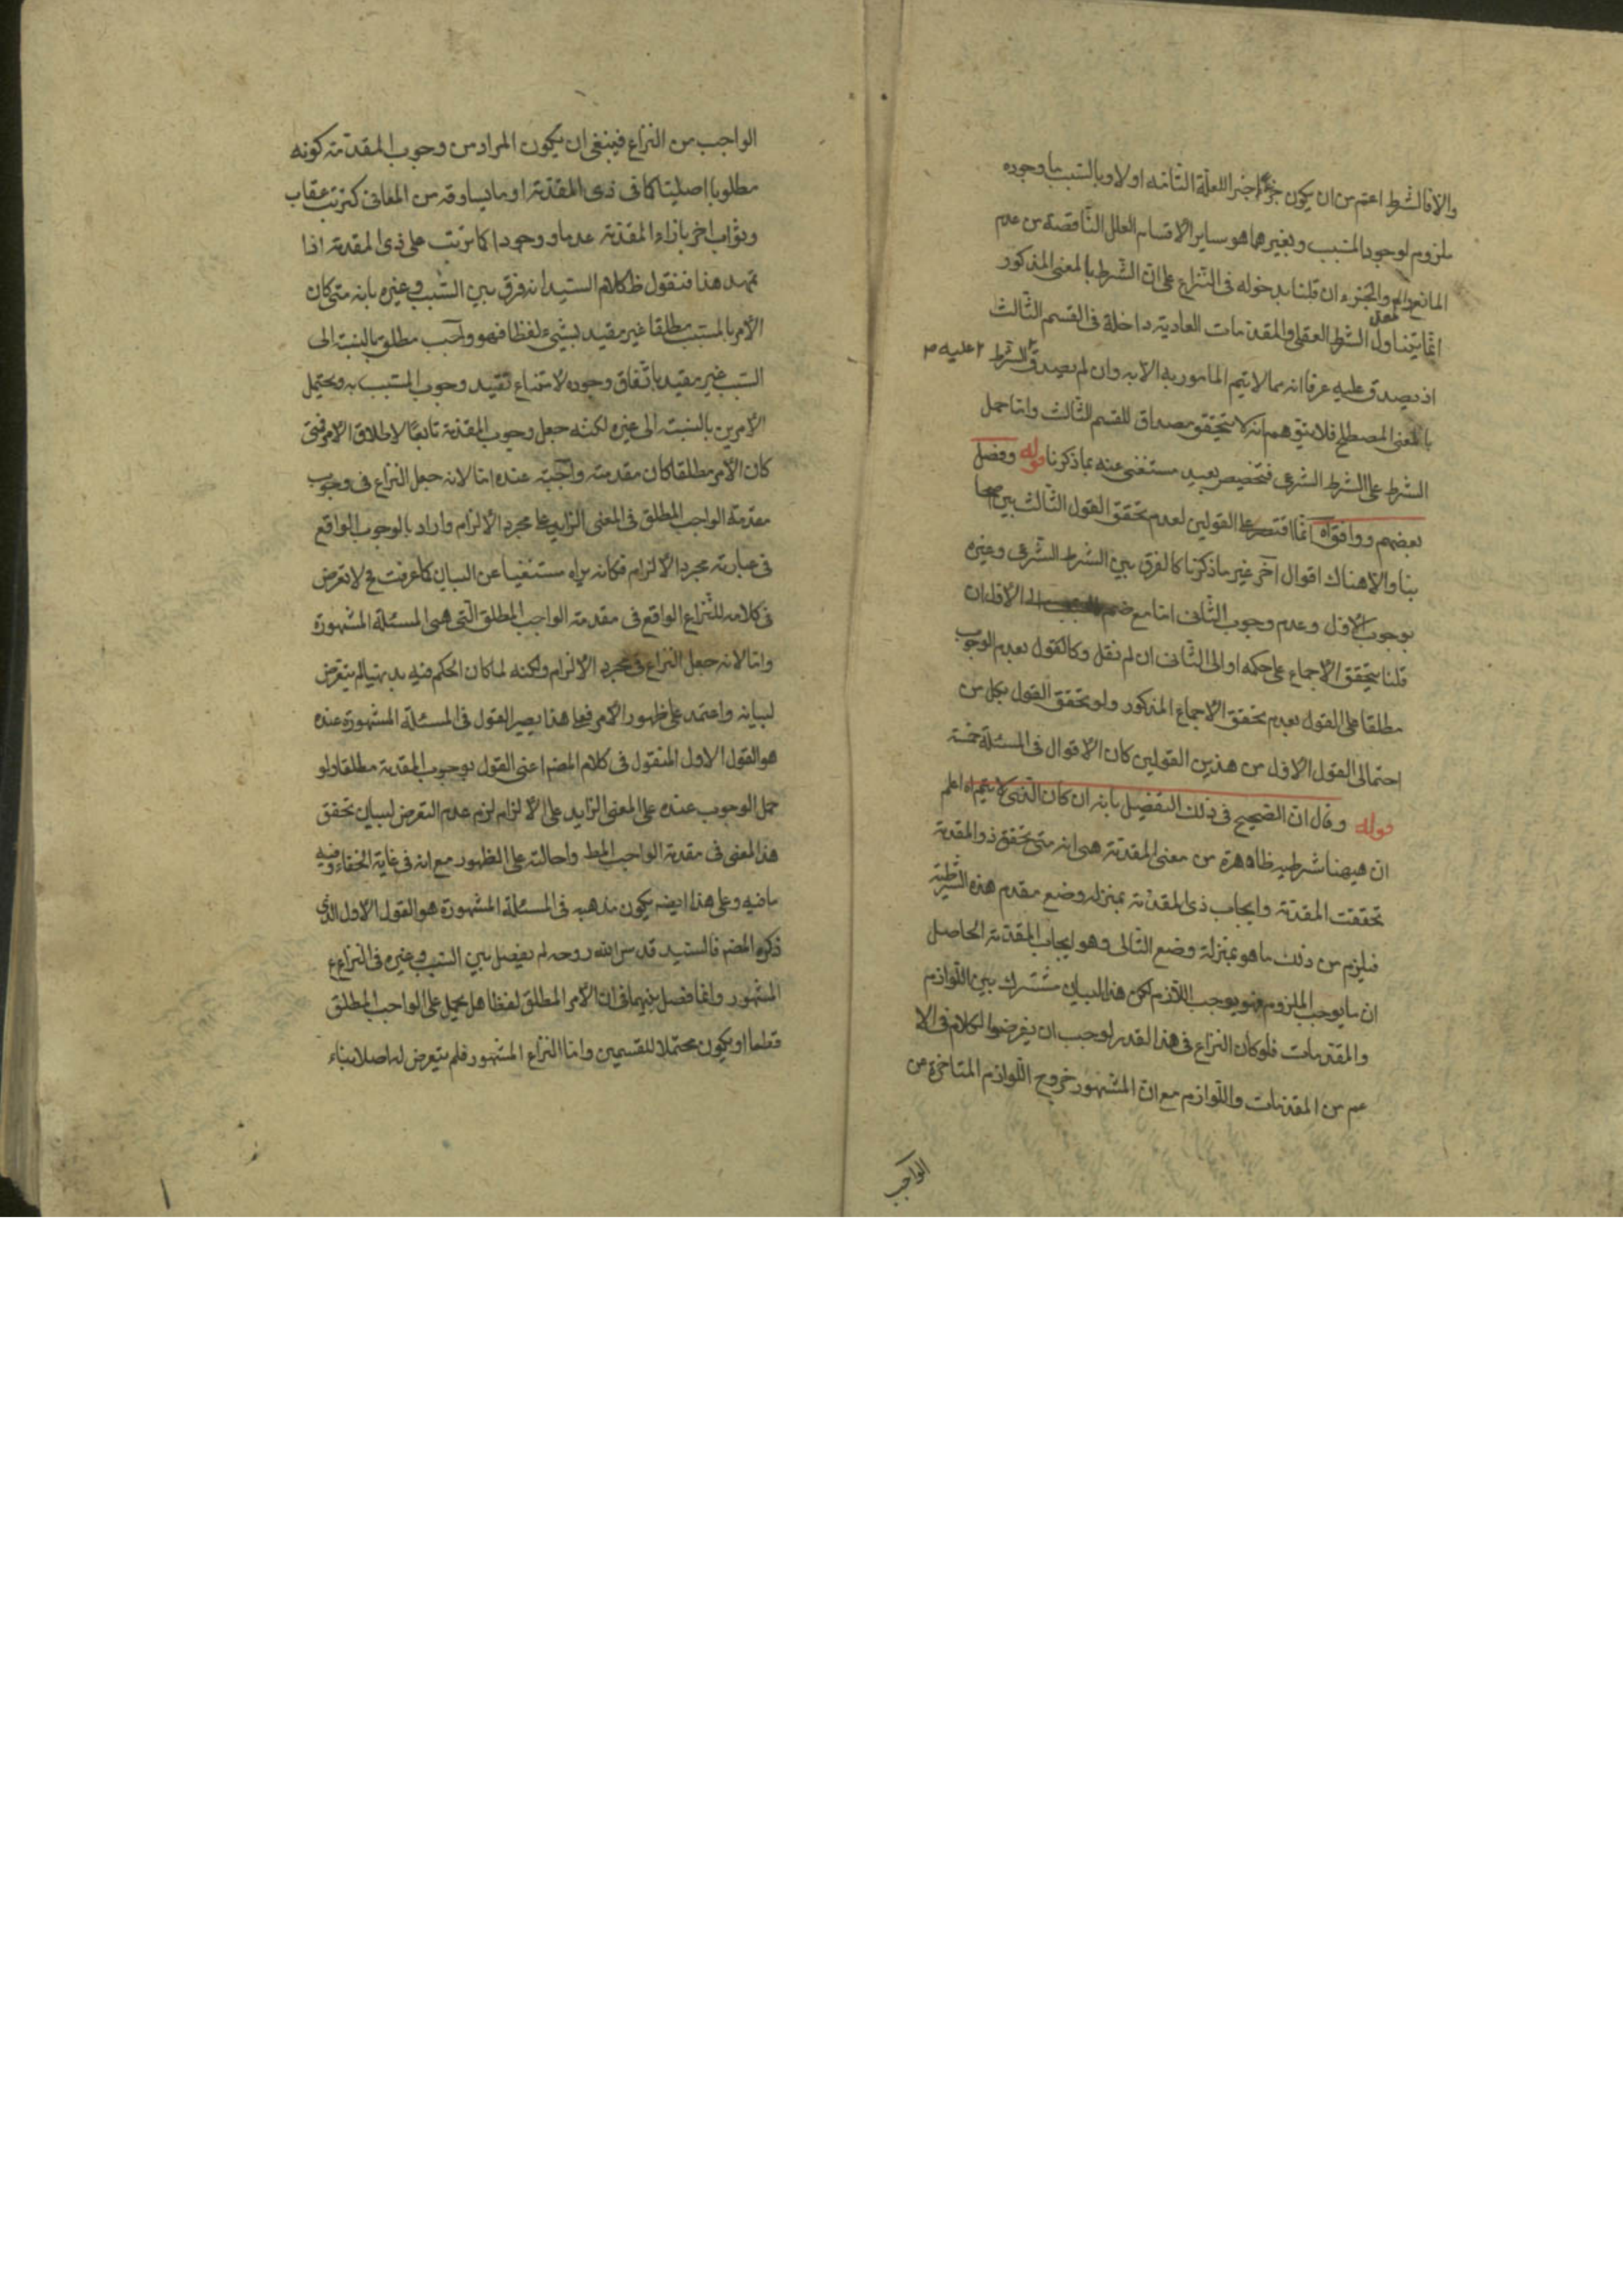 والا فالشرط اعم من ان يكون جزء اخيرا للعلة التامة او لا وبالسبب ما وجوده
ملزوم لوجود المسبب وبغيرهما هو ساير الاقسام العلل الناقصة من عدم
المانع والجزء ان قلنا بدخوله في النزاع على ان الشرط بالمعنى المذكور
انما يتناول الشرط العقلي والمقدمات العادية داخلة في القسم الثالث
اذ يصدق عليه عرفا انه مما لا يتم المامور به الا به وان لم يصدق الشرط عليه
بالمعنى المصطلح فلا يتوهم انه لا يتحقق مصداق للقسم الثالث واما حمل
الشرط على الشرط الشرعي فتخصيص بعيد مستغنى عنه بما ذكرنا قوله وفصل
بعضهم ووافق اه انما اقتصر على القولين لعدم تحقق القول الثالث بين
بنا والا هناك اقوال آخر غير ما ذكرنا كالفرق بين الشرط الشرعي وغيره
بوجوب الاول وعدم وجوب الثاني اما مع ضم الى الاول ان
قلنا بتحقق الاجماع على حكمه او الى الثاني ان لم نقل وكالقول بعدم الوجوب
مطلقا على القول بعدم تحقق الاجماع المذكور ولو تحقق القول بكل من
احتمالى القول الاول من هذين القولين كان الاقوال في المسئلة خمسة
قوله وقال ان الصحيح في ذلك التفصيل بانه ان كان الذي لا يتم اه اعلم
ان هيهنا شرطية ظاهرة من معنى المقدمة هى انه متى تحقق ذو المقدمة
تحققت المقدمة وايجاب ذى المقدمة بمنزلة وضع مقدم هذه الشرطية
فيلزم من ذلك ما هو بمنزلة وضع التالى وهو ايجاب المقدمة الحاصل
ان ما يوجب الملزوم فهو يوجب اللازم لكن هذا البيان مشترك بين اللوازم
والمقدمات فلو كان النزاع في هذا القدر لوجب ان يفرضوا الكلام في الا
عم من المقدمات واللوازم مع ان المشهور خروج اللوازم المتاخرة من
الواجب
الواجب من النزاع فينبغى ان يكون المراد من وجوب المقدمة كونه
مطلوبا اصليا كما في ذى المقدمة او ما يساوقه من المعانى كترتب عقاب
وثواب اخر بازاء المقدمة عدما ووجودا كما ترتب على ذى المقدمة اذا
تمهد هذا فنقول ظ كلام السيد انه فرق بين السبب وغيره بانه متى كان
الامر بالمسبب مطلقا غير مقيد بشيء لفظا فهو واجب مطلق بالنسبة الى
السبب غير مقيد باتفاق وجوده لامتناع تقييد وجوب المسبب به ويحتمل
الامرين بالنسبة الى غيره لكنه جعل وجوب المقدمة تابعا لاطلاق الامر فمتى
كان الامر مطلقا كان مقدمته واجبة عنده اما لانه جعل النزاع في وجوب
مقدمة الواجب المطلق في المعنى الزايد على مجرد الالزام واراد بالوجوب الواقع
في عبارته مجرد الالزام فكانه يراه مستغنيا عن البيان كما عرفت فح لا تعرض
في كلامه للنزاع الواقع في مقدمة الواجب المطلق التى هى المسئلة المشهورة
واما لانه جعل النزاع في مجرد الالزام ولكنه لما كان الحكم فيه بديهيا لم يتعرض
لبيانه واعتمد على ظهور الامر فعلى هذا يصير القول في المسئلة المشهورة عنده
هو القول الاول المنقول في كلام المصنف اعنى القول بوجوب المقدمة مطلقا ولو
حمل الوجوب عنده على المعنى الزايد على الالزام لزم عدم التعرض لبيان تحقق
هذا المعنى في مقدمة الواجب المط واحالته على الظهور مع انه في غاية الخفاء وفيه
ما فيه وعلى هذا ايضا يكون مذهبه في المسئلة المشهورة هو القول الاول الذى
ذكره المصنف فالسيد قدس الله روحه لم يفصل بين السبب وغيره في النزاع
المشهور وانما فصل بينهما في ان الامر المطلق لفظا هل يحمل على الواجب المطلق
قطعا او يكون محتملا للقسمين واما النزاع المشهور فلم يتعرض له اصلا بناء